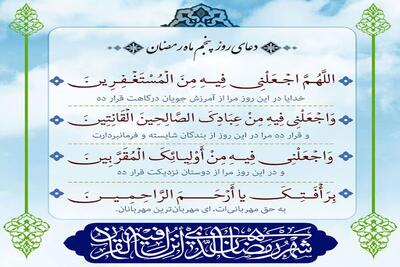 دعای روز پنجم ماه رمضان
اللَّهُمَّ اجْعَلْنِي فِيهِ مِنَ الْمُسْتَغْفِرِينَ
خدایا در این روز مرا از آمرزش جویان درگاهت قرار ده
وَاجْعَلْنِي فِيهِ مِنْ عِبَادِكَ الصَّالِحِينَ الْقَانِتِينَ
و قرار ده مرا در این روز از بندگان شایسته و فرمانبردارت
وَاجْعَلْنِي فِيهِ مِنْ أَوْلِيَائِكَ الْمُقَرَّبِينَ
و در این روز مرا از دوستان نزدیکت قرار ده
بِرَأْفَتِكَ يا أَرْحَمَ الرَّاحِمِينَ
به حق مهربانی‌ات، ای مهربان‌ترین مهربانان.
شهر رمضان الذی انزل فیه القرآن